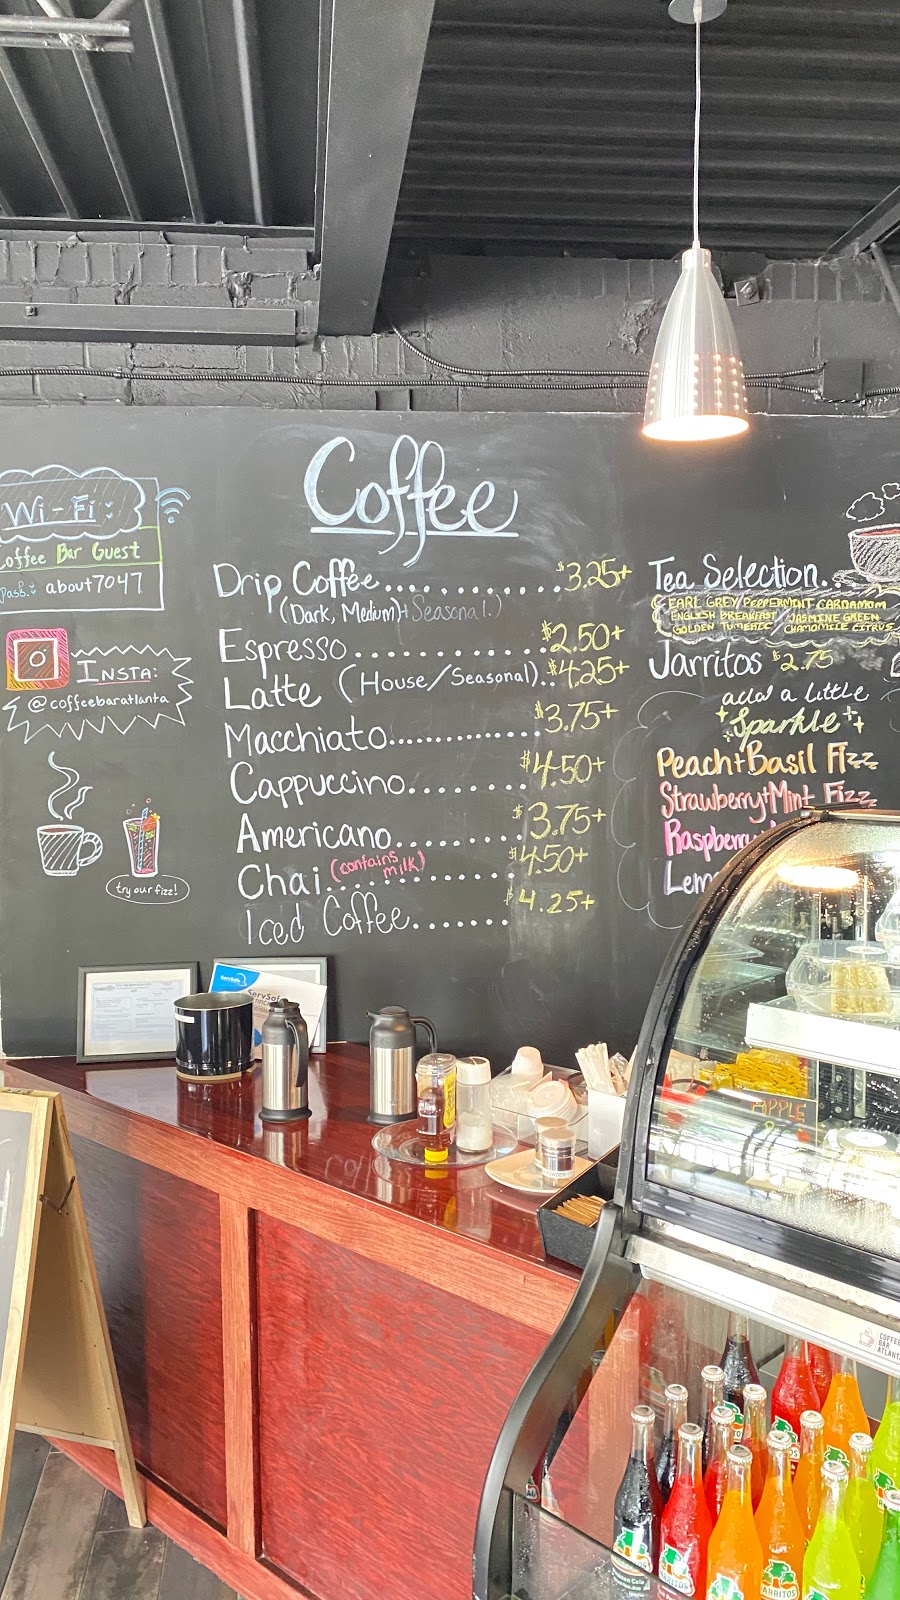 Wi-Fi
Coffee Bar Guest
Pass: about7047
INSTA:
@coffeebaratlanta
try our fizz!
Coffee
Drip Coffee............... $3.25+
(Dark, Medium)+ Seasonal.)
Espresso............... $2.50+
Latte (House/Seasonal).. $4.25+
Macchiato............... $3.75+
Cappuccino........ $4.50+
Americano......... $3.75+
Chai (contains milk)............ $4.50+
Iced Coffee....... $4.25+
Tea Selection..
EARL GREY/PEPPERMINT CARDAMOM
ENGLISH BREAKFAST/JASMINE GREEN
GOLDEN TUMERIC/CHAMOMILE CITRUS
Jarritos $2.75
add a little
Sparkle
Peach+Basil Fizz
Strawberry+Mint Fizz
Raspberry
ServSafe
ServSafe
APPLE
COFFEE
BAR
ATLANTA